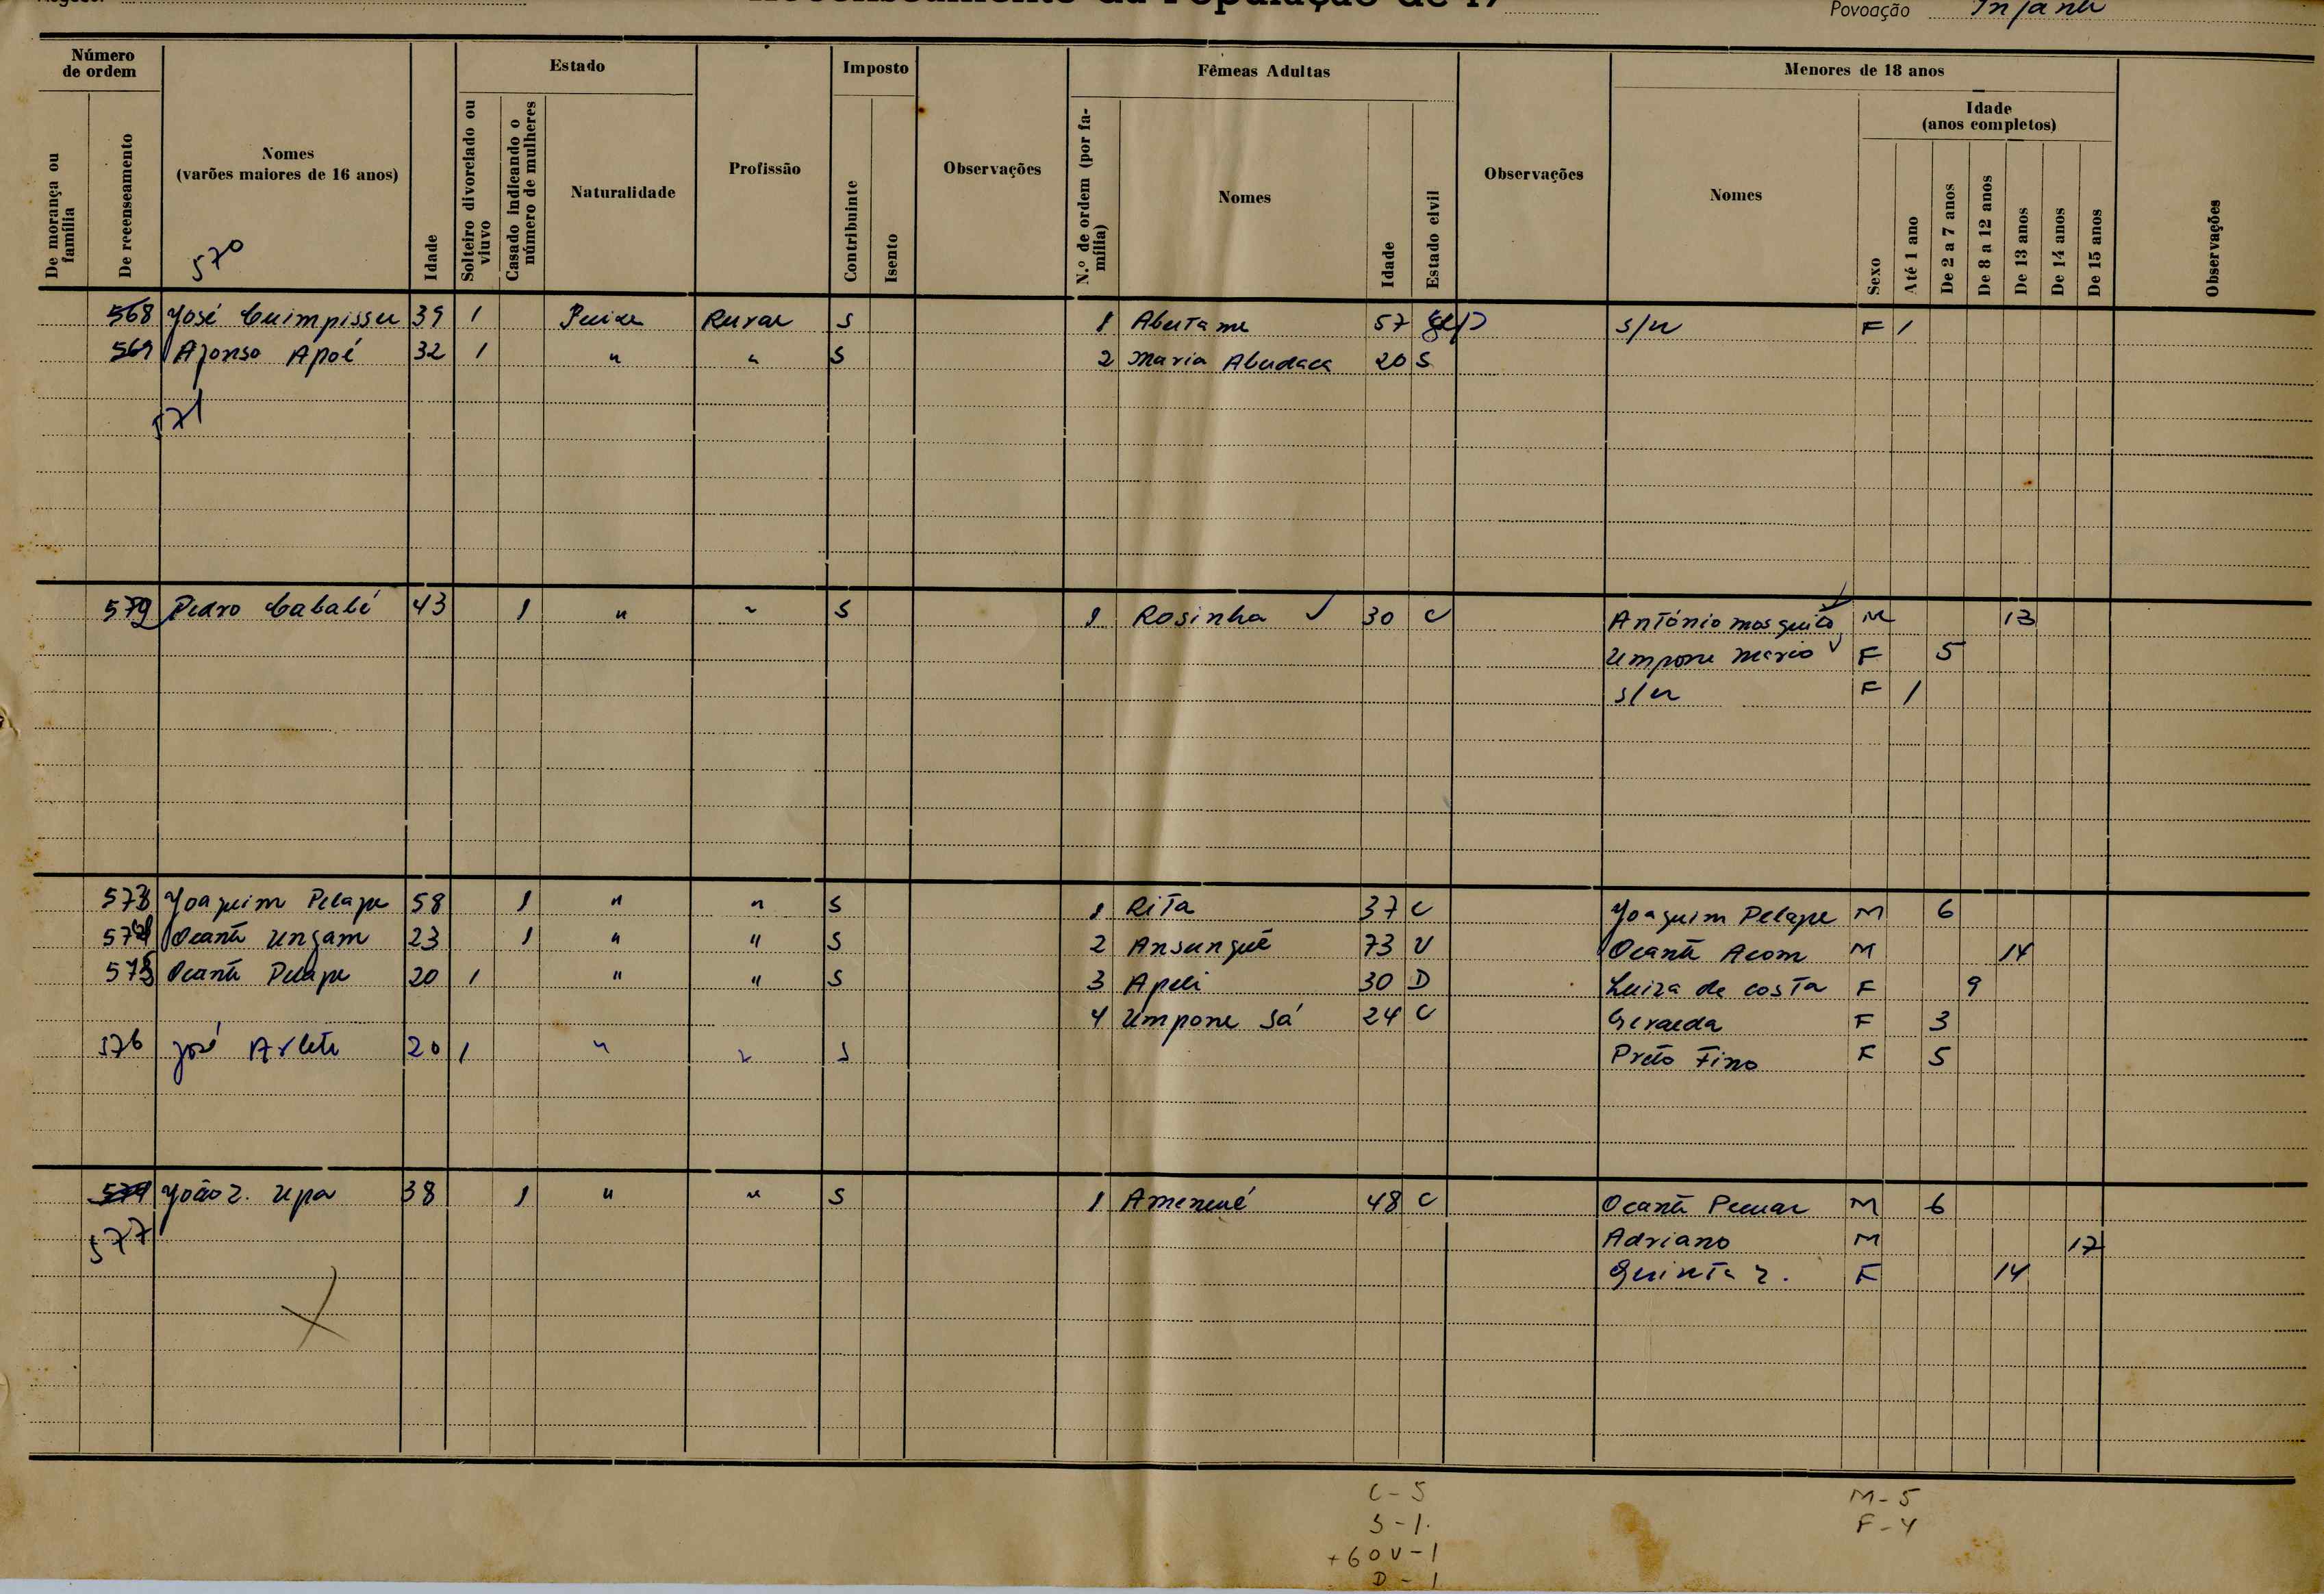 Povoação
Número de ordem
De morança ou família
De recenseamento
Nomes (varões maiores de 16 anos)
570
Idade
Estado
Solteiro divorciado ou viuvo
Casado indicando o número de mulheres
Naturalidade
Profissão
Imposto
Contribuinte
Isento
Observações
Fêmeas Adultas
N.º de ordem (por família)
Nomes
Idade
Estado civil
Observações
Menores de 18 anos
Nomes
Sexo
Idade (anos completos)
Até 1 ano
De 2 a 7 anos
De 8 a 12 anos
De 13 anos
De 14 anos
De 15 anos
Observações
568 José 39 1 S 1 57 s/n F 1
569 Afonso Apoé 32 1 " " S 2 Maria 20 S
571
Pedro Cababé 43 1 " " S 1 Rosinha 30 C António mosquito M 13
Umpone F 5
s/n F 1
573 Joaquim Pelape 58 1 " " S 1 Rita 37 C Joaquim Pelape M 6
574 Ocanti Ungam 23 1 " " S 2 Ansungué 73 V Ocanti Acom M 14
575 Ocanti Pelape 20 1 " " S 3 Apeli 30 D Luiza da costa F 9
4 Umpone Sá 24 C F 3
576 José 20 1 " " S Preto Fino F 5
João 2. Upa 38 1 " " S 1 48 C Ocanti M 6
577 Adriano M 17
Quinta 2. F 14
C - 5
S - 1.
+60 V - 1
D - 1
M - 5
F - 4